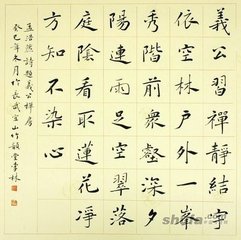 義公習禪靜結宇
依空林户外一峯
秀階前衆壑深夕
陽連雨足空翠落
庭陰看取蓮花凈
方知不染心
孟浩然詩題義公禪房
癸巳年冬月於長武山竹堂李林